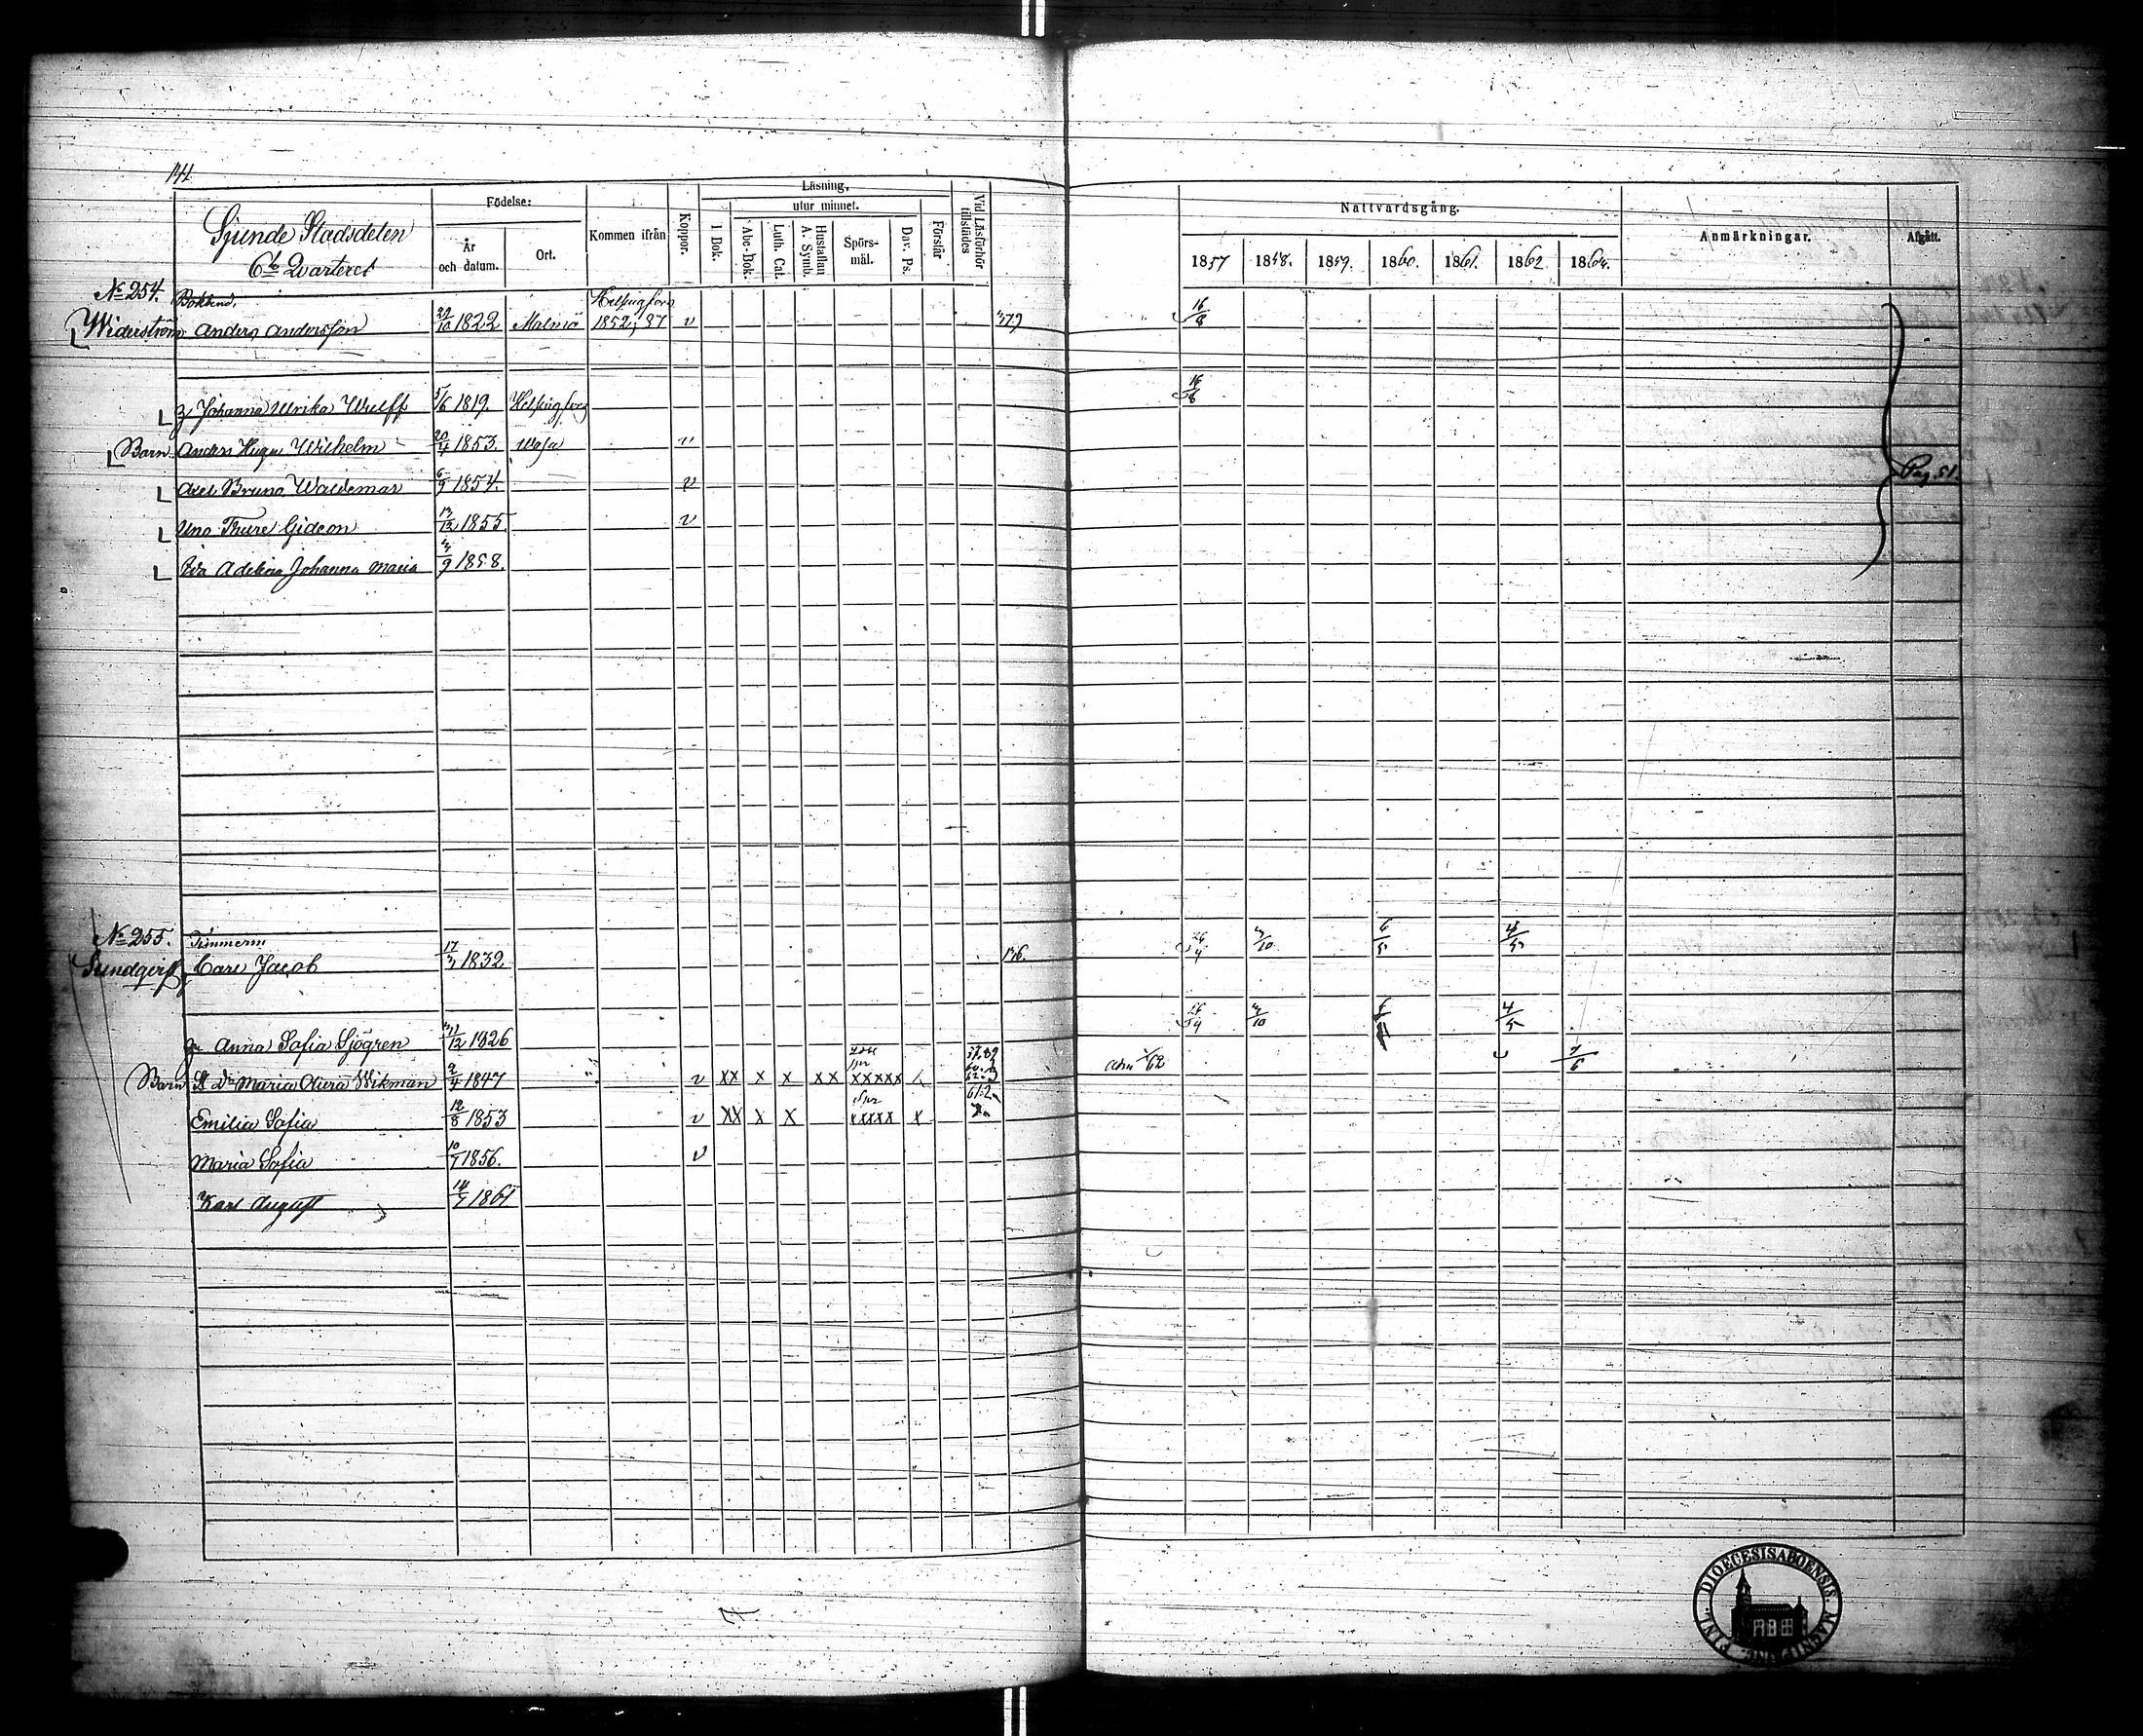 144
Sjunde Stadsdelen
6te Qvarteret
Födelse:
År och datum.
Ort.
Kommen ifrån
Koppor.
Läsning,
utur minnet.
I Bok.
Abc-Bok.
Luth. Cat.
Hustaflan A. Symb.
Spörs-mål.
Dav. Ps.
Förstår
Vid Läsförhör tillstädes
Nattvardsgång.
1857 1858. 1859. 1860. 1861. 1862 1864.
Anmärkningar.
Afgått.
No 254. Bokbind. Helsingfors
Widerström Anders Andersson 22/10 1822 Malmö 1852; 37 v 379 16/8
g Johanna Ulrika Wulff 5/6 1819. Helsingfors 16/8
Barn Anders Hugo Wilhelm 20/4 1853. Wasa v
Axel Bruno Waldemar 6/9 1854. v Pag. 51.
Uno Thure Gideon 13/12 1855. v
Ida Adelina Johanna Maria 4/9 1858.
No 255. Timmerm
Sundqvist Carl Jacob 17/3 1832 136. 26/4 3/10 6/5 4/5
Anna Sofia Sjögren 31/12 1826 26/4 3/10 4/5
Barn Maria Wikman 2/4 1847 v xx x x xx xxxxx 7/6
Emilia Sofia 12/8 1853 v xx x x xxxxx x
Maria Sofia 10/7 1856. v
Karl August 14/7 1861
FINL. DIOECESIS ABOENSIS. MAGNI PRINC.